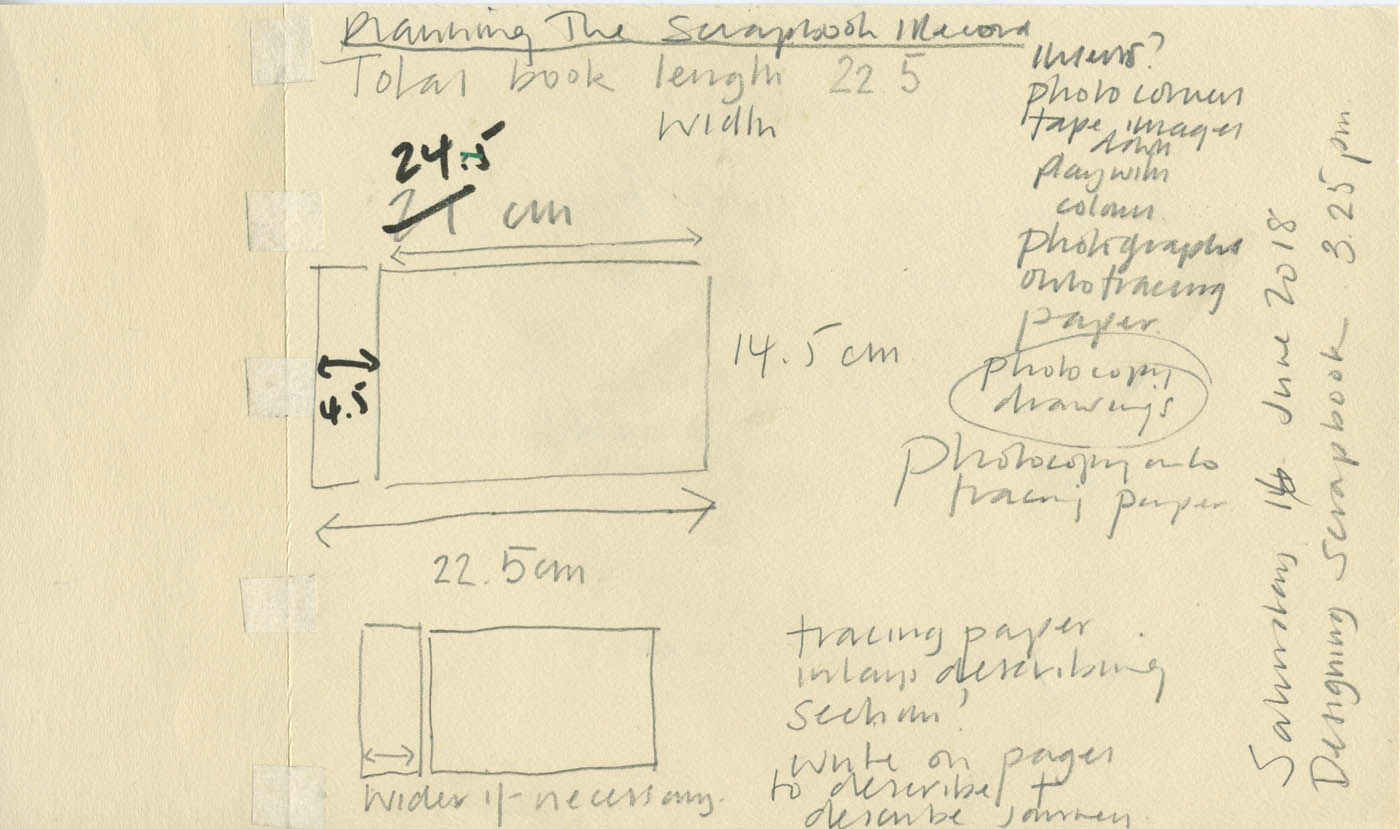 Planning The Scrapbook Record
Total book length 22.5
width
24.5
21 cm
4.5
14.5 cm
22.5cm
wider if necessary.
Inserts?
photo corners
tape images
down
play with
colour
photographs
onto tracing
paper.
photocopy
drawings
photocopy onto
tracing paper
tracing paper
inlays describing
section?
write on pages
to describe +
describe journey.
Saturday 16 June 2018
Designing Scrapbook 3.25 pm.